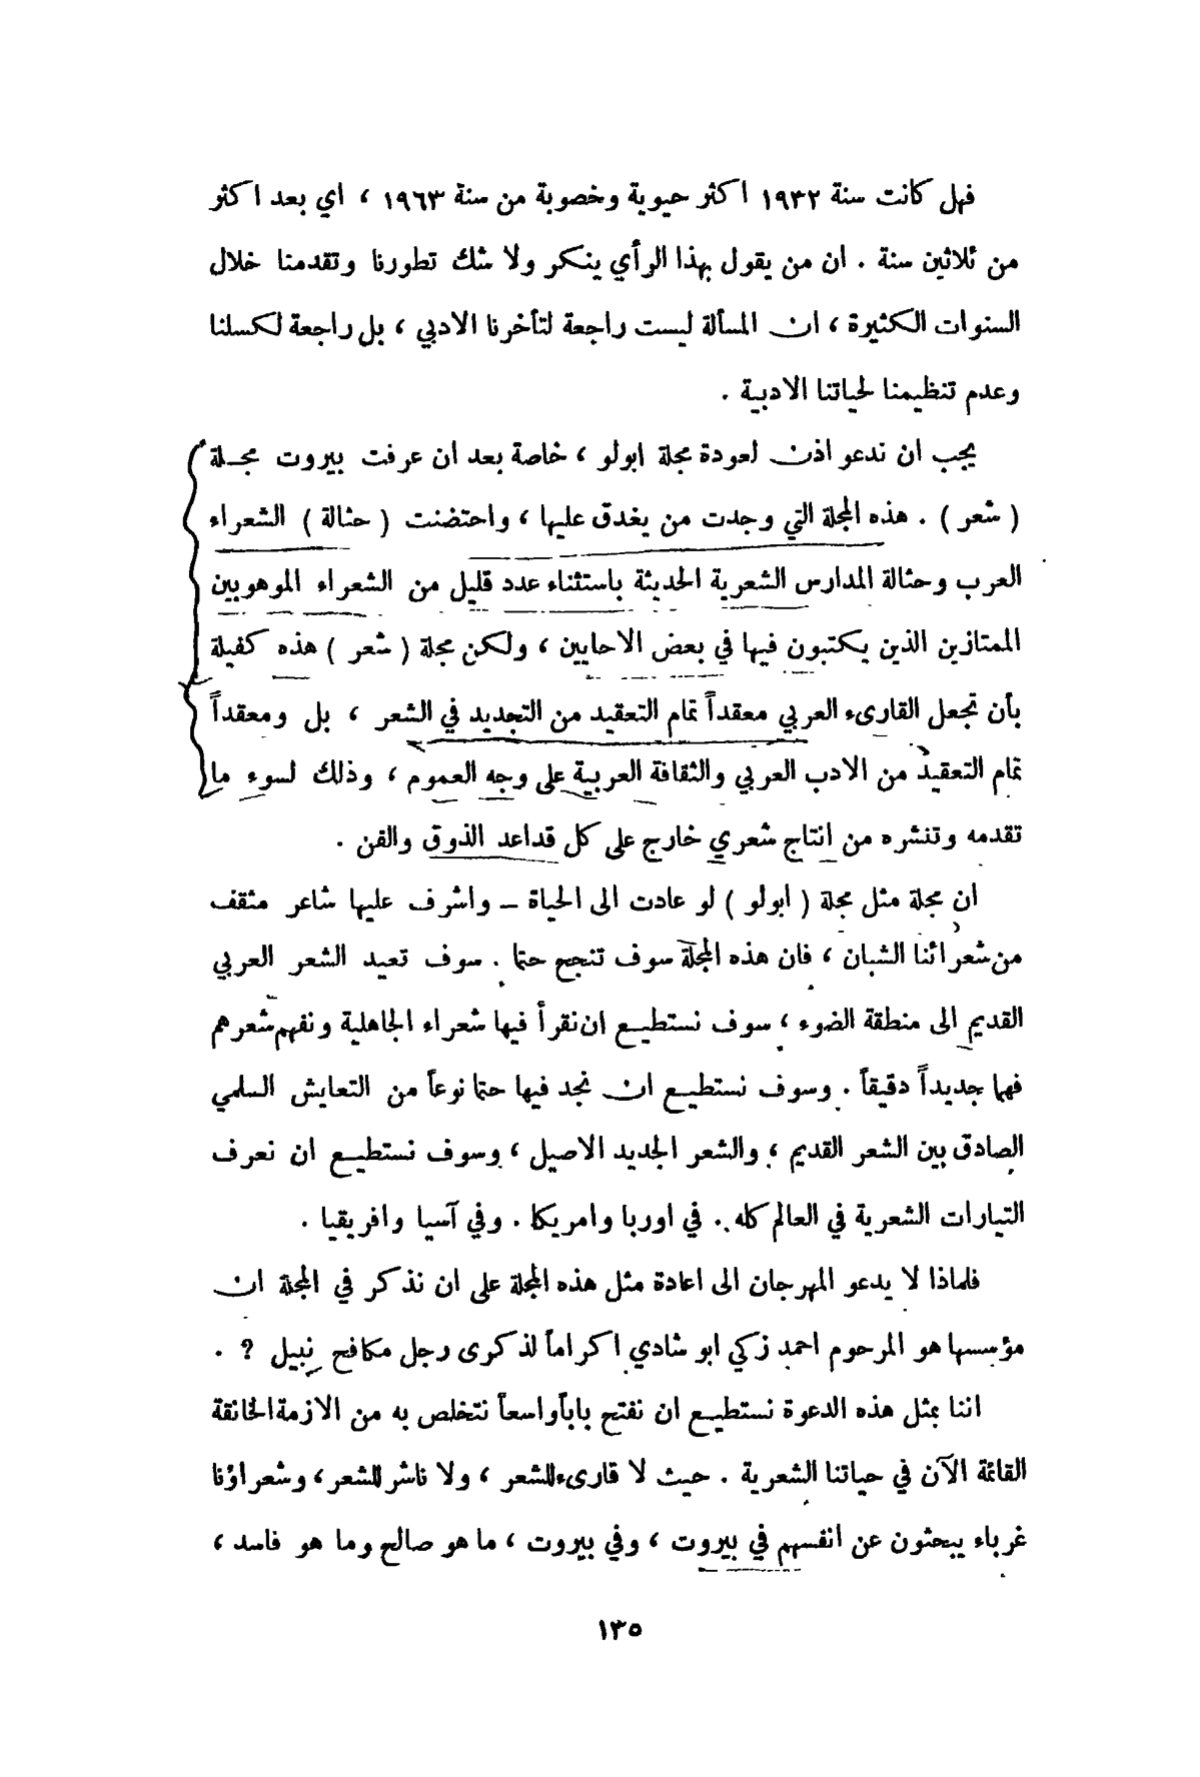 فهل كانت سنة ١٩٣٢ اكثر حيوية وخصوبة من سنة ١٩٦٣ ، اي بعد اكثر
من ثلاثين سنة . ان من يقول بهذا الرأي ينكر ولا شك تطورنا وتقدمنا خلال
السنوات الكثيرة ، ان المسألة ليست راجعة لتأخرنا الادبي ، بل راجعة لكسلنا
وعدم تنظيمنا لحياتنا الادبية .
يجب ان ندعو اذن لعودة مجلة ابولو ، خاصة بعد ان عرفت بيروت مجلة
( شعر ) . هذه المجلة التي وجدت من يغدق عليها ، واحتضنت ( حثالة ) الشعراء
العرب وحثالة المدارس الشعرية الحديثة باستثناء عدد قليل من الشعراء الموهوبين
الممتازين الذين يكتبون فيها في بعض الاحايين ، ولكن مجلة ( شعر ) هذه كفيلة
بأن تجعل القارىء العربي معقداً تمام التعقيد من التجديد في الشعر ، بل ومعقداً
تمام التعقيد من الادب العربي والثقافة العربية على وجه العموم ، وذلك لسوء ما
تقدمه وتنشره من انتاج شعري خارج على كل قداعد الذوق والفن .
ان مجلة مثل مجلة ( ابولو ) لو عادت الى الحياة – واشرف عليها شاعر مثقف
من شعرائنا الشبان ، فان هذه المجلة سوف تنجح حتما . سوف تعيد الشعر العربي
القديم الى منطقة الضوء ، سوف نستطيع ان نقرأ فيها شعراء الجاهلية ونفهم شعرهم
فهما جديداً دقيقاً . وسوف نستطيع ان نجد فيها حتما نوعاً من التعايش السلمي
الصادق بين الشعر القديم ، والشعر الجديد الاصيل ، وسوف نستطيع ان نعرف
التيارات الشعرية في العالم كله . في اوربا وامريكا . وفي آسيا وافريقيا .
فلماذا لا يدعو المهرجان الى اعادة مثل هذه المجلة على ان نذكر في المجلة ان
مؤسسها هو المرحوم احمد زكي ابو شادي اكراماً لذكرى رجل مكافح نبيل ؟ .
اننا بمثل هذه الدعوة نستطيع ان نفتح باباً واسعاً نتخلص به من الازمة الخانقة
القائمة الآن في حياتنا الشعرية . حيث لا قارىء للشعر ، ولا ناشر للشعر ، وشعراؤنا
غرباء يبحثون عن انفسهم في بيروت ، وفي بيروت ، ما هو صالح وما هو فاسد ،
١٣٥